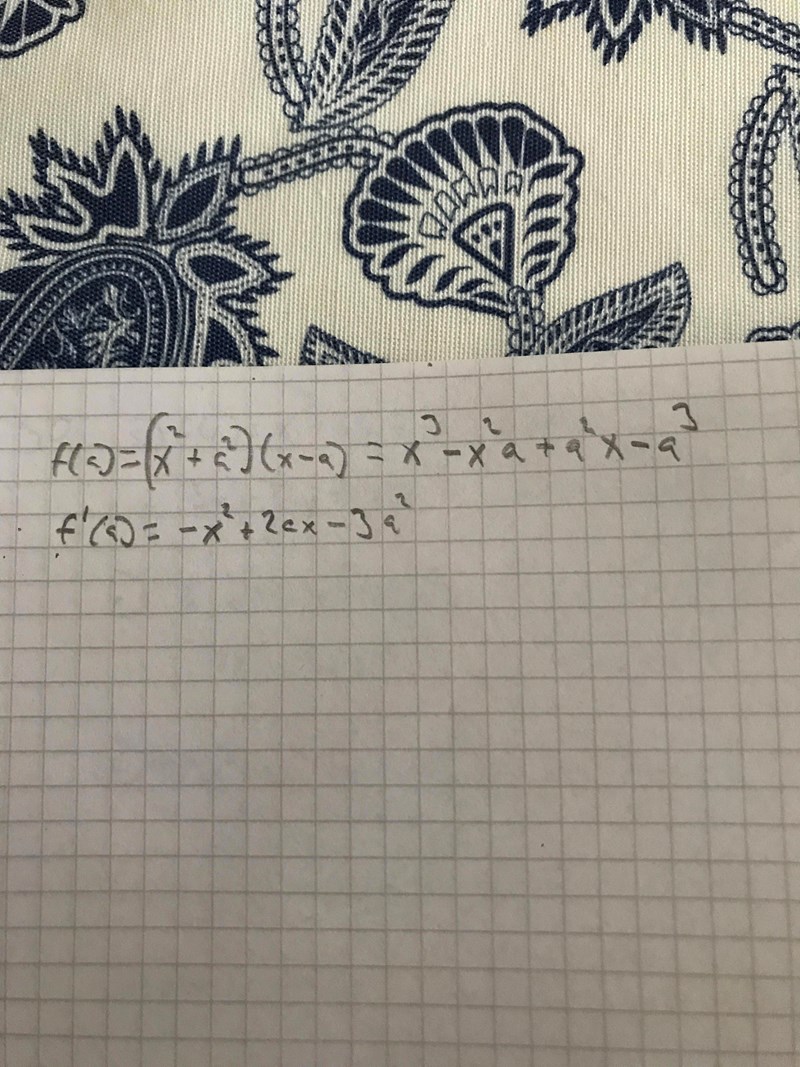 f(a)=(x²+a²)(x-a) = x³-x²a+a²x-a³
f'(a)= -x²+2ax-3a²